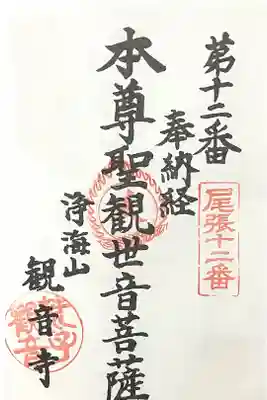 第十二番
奉納経
尾張十二番
本尊聖観世音菩薩
浄海山
観音寺